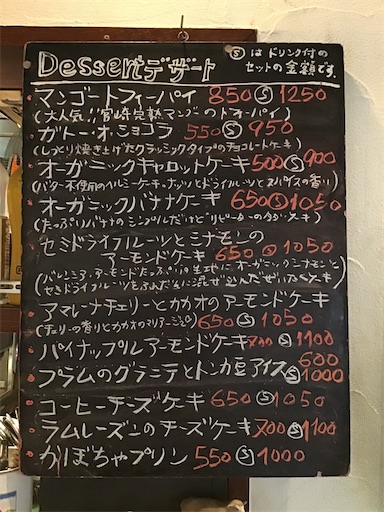 Dessertデザート
Ⓢは ドリンク付の
セットの金額です。
マンゴートフィーパイ 850 Ⓢ 1250
(大人気!!宮崎完熟マンゴーのトフィーパイ)
ガトー・オ・ショコラ 550 Ⓢ 950
(しっとり焼き上げたクラシックタイプのチョコレートケーキ)
オーガニックキャロットケーキ 500 Ⓢ 900
(バター不使用のヘルシーケーキ。ナッツとドライフルーツとスパイスの香り)
オーガニックバナナケーキ 650 Ⓢ 1050
(たっぷりバナナのシンプルだけどリピーターの多いケーキ)
セミドライフルーツとシナモンの
アーモンドケーキ 650 Ⓢ 1050
(バレンシアアーモンドたっぷりの生地にオーガニックシナモンと
セミドライフルーツをふんだんに混ぜ込んだぜいたくケーキ)
アマレーナチェリーとカカオのアーモンドケーキ
(チェリーの香りとカカオのマリアージュ♡) 650 Ⓢ 1050
パイナップルアーモンドケーキ 700 Ⓢ 1100
プラムのグラニテとトンカ豆アイス 600 Ⓢ 1000
コーヒーチーズケーキ 650 Ⓢ 1050
ラムレーズンのチーズケーキ 700 Ⓢ 1100
かぼちゃプリン 550 Ⓢ 1000